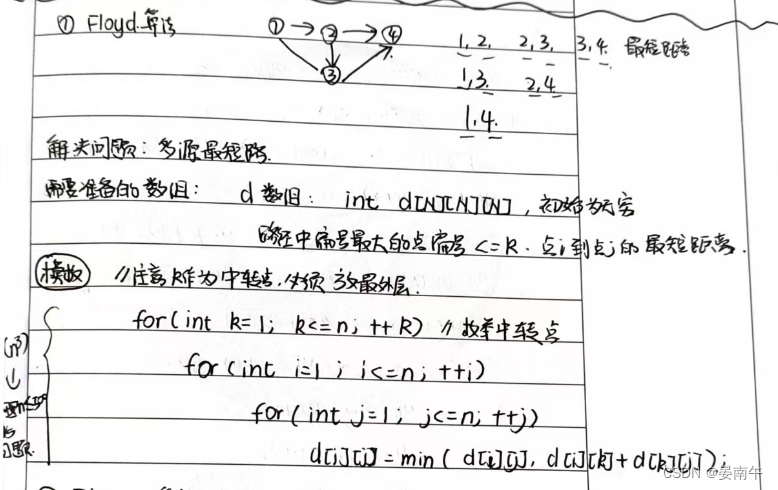 ① Floyd算法
① → ② → ④
③
1,2. 2,3. 3,4. 最短距离
1,3. 2,4.
1,4.
解决问题：多源最短路.
需要准备的数组： d数组： int d[N][N][N], 初始为无穷
路径中编号最大的点编号 <=k. 点i到点j的最短距离.
模板 //注意 k作为中转点,必须放最外层.
for(int k=1; k<=n; ++k) // 枚举中转点
for(int i=1; i<=n; ++i)
for(int j=1; j<=n; ++j)
d[i][j]=min( d[i][j], d[i][k]+d[k][j]);
(n³)
↓
习题
CSDN @晏南午